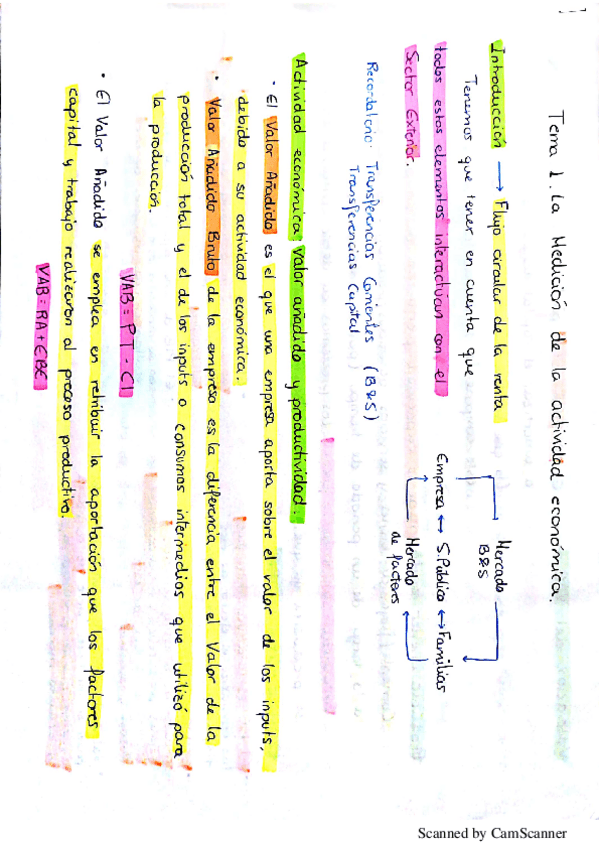 Tema 1. La Medición de la actividad económica.
Introducción → Flujo circular de la renta
Tenemos que tener en cuenta que
todos estos elementos interactúan con el
Sector Exterior.
Mercado
B&S
Empresa ↔ S. Público ↔ Familias
Mercado
de factores
Recordatorio: Transferencias Corrientes (B&S)
Transferencias Capital
Actividad económica, valor añadido y productividad.
· El Valor Añadido es el que una empresa aporta sobre el valor de los inputs,
debido a su actividad económica.
· Valor Añadido Bruto de la empresa es la diferencia entre el Valor de la
producción total y el de los inputs o consumos intermedios que utilizó para
la producción.
VAB = PT - CI
· El Valor Añadido se emplea en retribuir la aportación que los factores
capital y trabajo realizaron al proceso productivo.
VAB = RA + EBE
Scanned by CamScanner